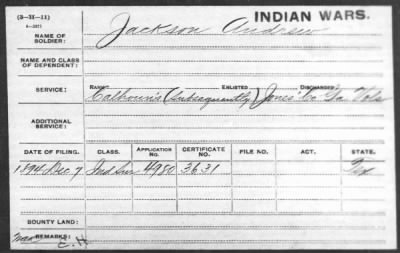 (3-31-11)
INDIAN WARS.
NAME OF SOLDIER:
Jackson Andrew
NAME AND CLASS OF DEPENDENT:
SERVICE:
RANK ENLISTED DISCHARGED
Calhoun's (Subsequently) Jones' Co Ga. Vols
ADDITIONAL SERVICE:
DATE OF FILING. CLASS. APPLICATION NO. CERTIFICATE NO. FILE NO. ACT. STATE.
1894 Dec. 7 Ind Sur 4980 3631 Tex
BOUNTY LAND:
REMARKS:
C. H